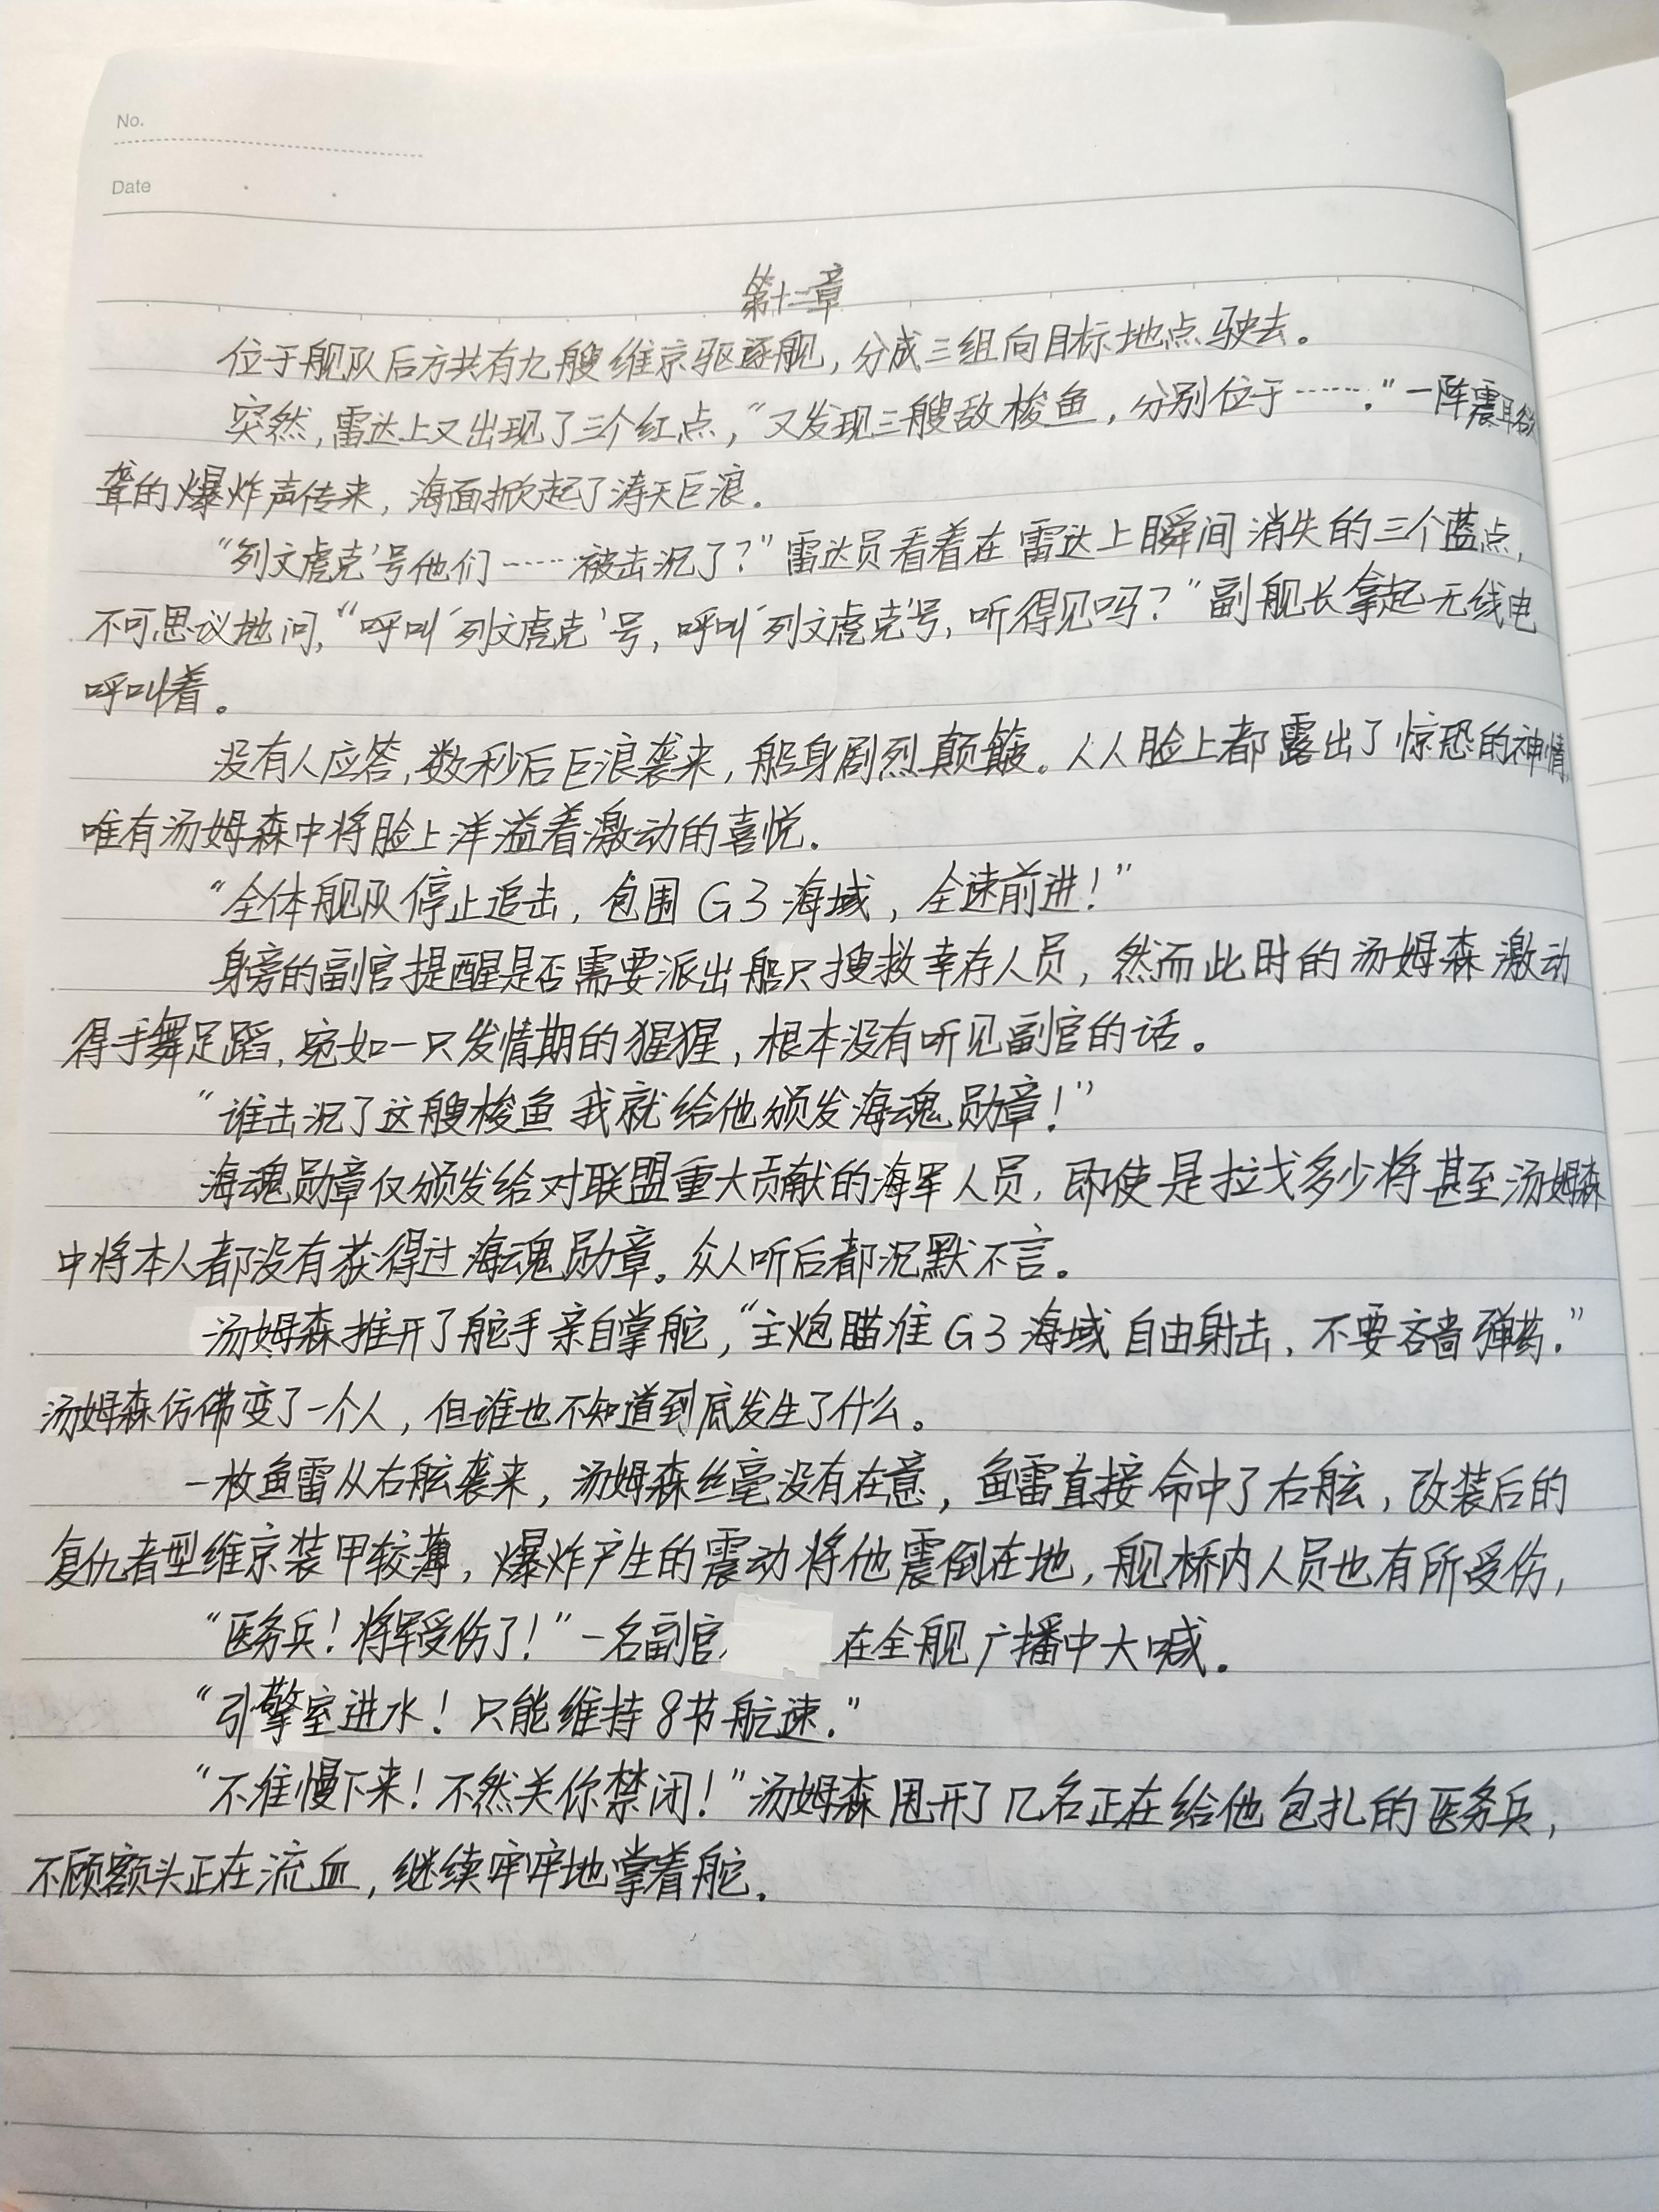 No.
Date
第十二章
位于舰队后方共有九艘维京驱逐舰，分成三组向目标地点驶去。
突然，雷达上又出现了三个红点，“又发现三艘敌梭鱼，分别位于……。”一阵震耳欲
聋的爆炸声传来，海面掀起了涛天巨浪。
“列文虎克’号他们……被击沉了？”雷达员看着在雷达上瞬间消失的三个蓝点，
不可思议地问，“呼叫‘列文虎克’号，呼叫‘列文虎克’号，听得见吗？”副舰长拿起无线电
呼叫着。
没有人应答，数秒后巨浪袭来，船身剧烈颠簸。人人脸上都露出了惊恐的神情，
唯有汤姆森中将脸上洋溢着激动的喜悦。
“全体舰队停止追击，包围G3海域，全速前进！”
身旁的副官提醒是否需要派出船只搜救幸存人员，然而此时的汤姆森激动
得手舞足蹈，宛如一只发情期的猩猩，根本没有听见副官的话。
“谁击沉了这艘梭鱼我就给他颁发海魂勋章！”
海魂勋章仅颁发给对联盟重大贡献的海军人员，即使是拉戈多少将甚至汤姆森
中将本人都没有获得过海魂勋章。众人听后都沉默不言。
汤姆森推开了舵手亲自掌舵，“主炮瞄准G3海域自由射击，不要吝啬弹药。”
汤姆森仿佛变了一个人，但谁也不知道到底发生了什么。
一枚鱼雷从右舷袭来，汤姆森丝毫没有在意，鱼雷直接命中了右舷，改装后的
复仇者型维京装甲较薄，爆炸产生的震动将他震倒在地，舰桥内人员也有所受伤，
“医务兵！将军受伤了！”一名副官在全舰广播中大喊。
“引擎室进水！只能维持8节航速。”
“不准慢下来！不然关你禁闭！”汤姆森甩开了几名正在给他包扎的医务兵，
不顾额头正在流血，继续牢牢地掌着舵。